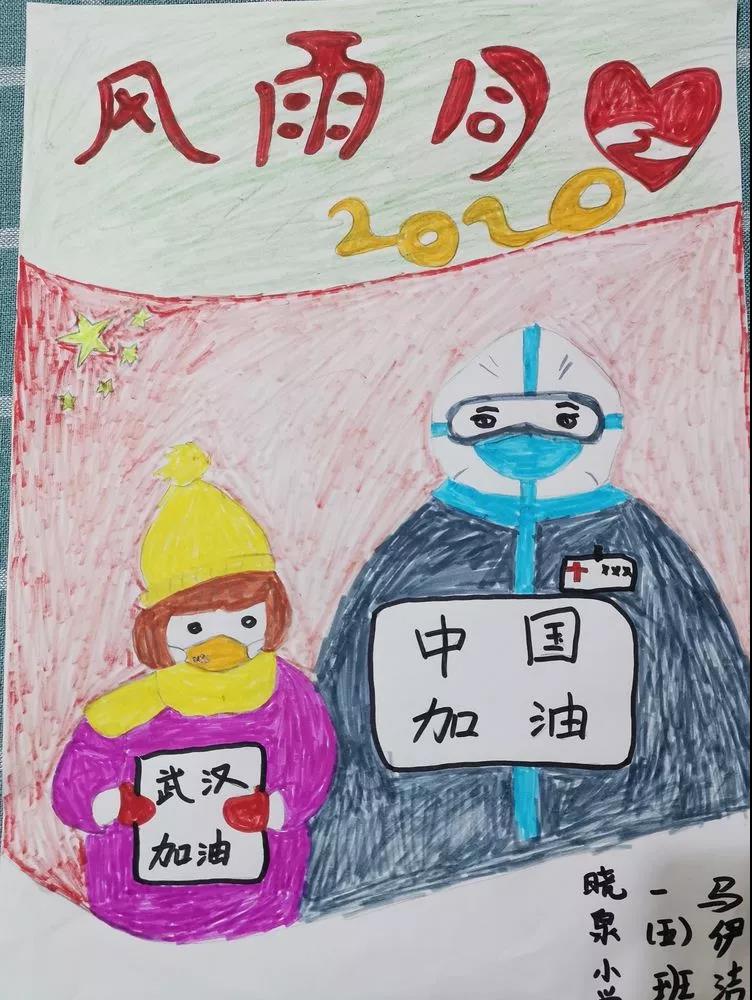 风雨同
2020
xxx
中国
加油
武汉
加油
晓泉小学
一(五)班
马伊洁